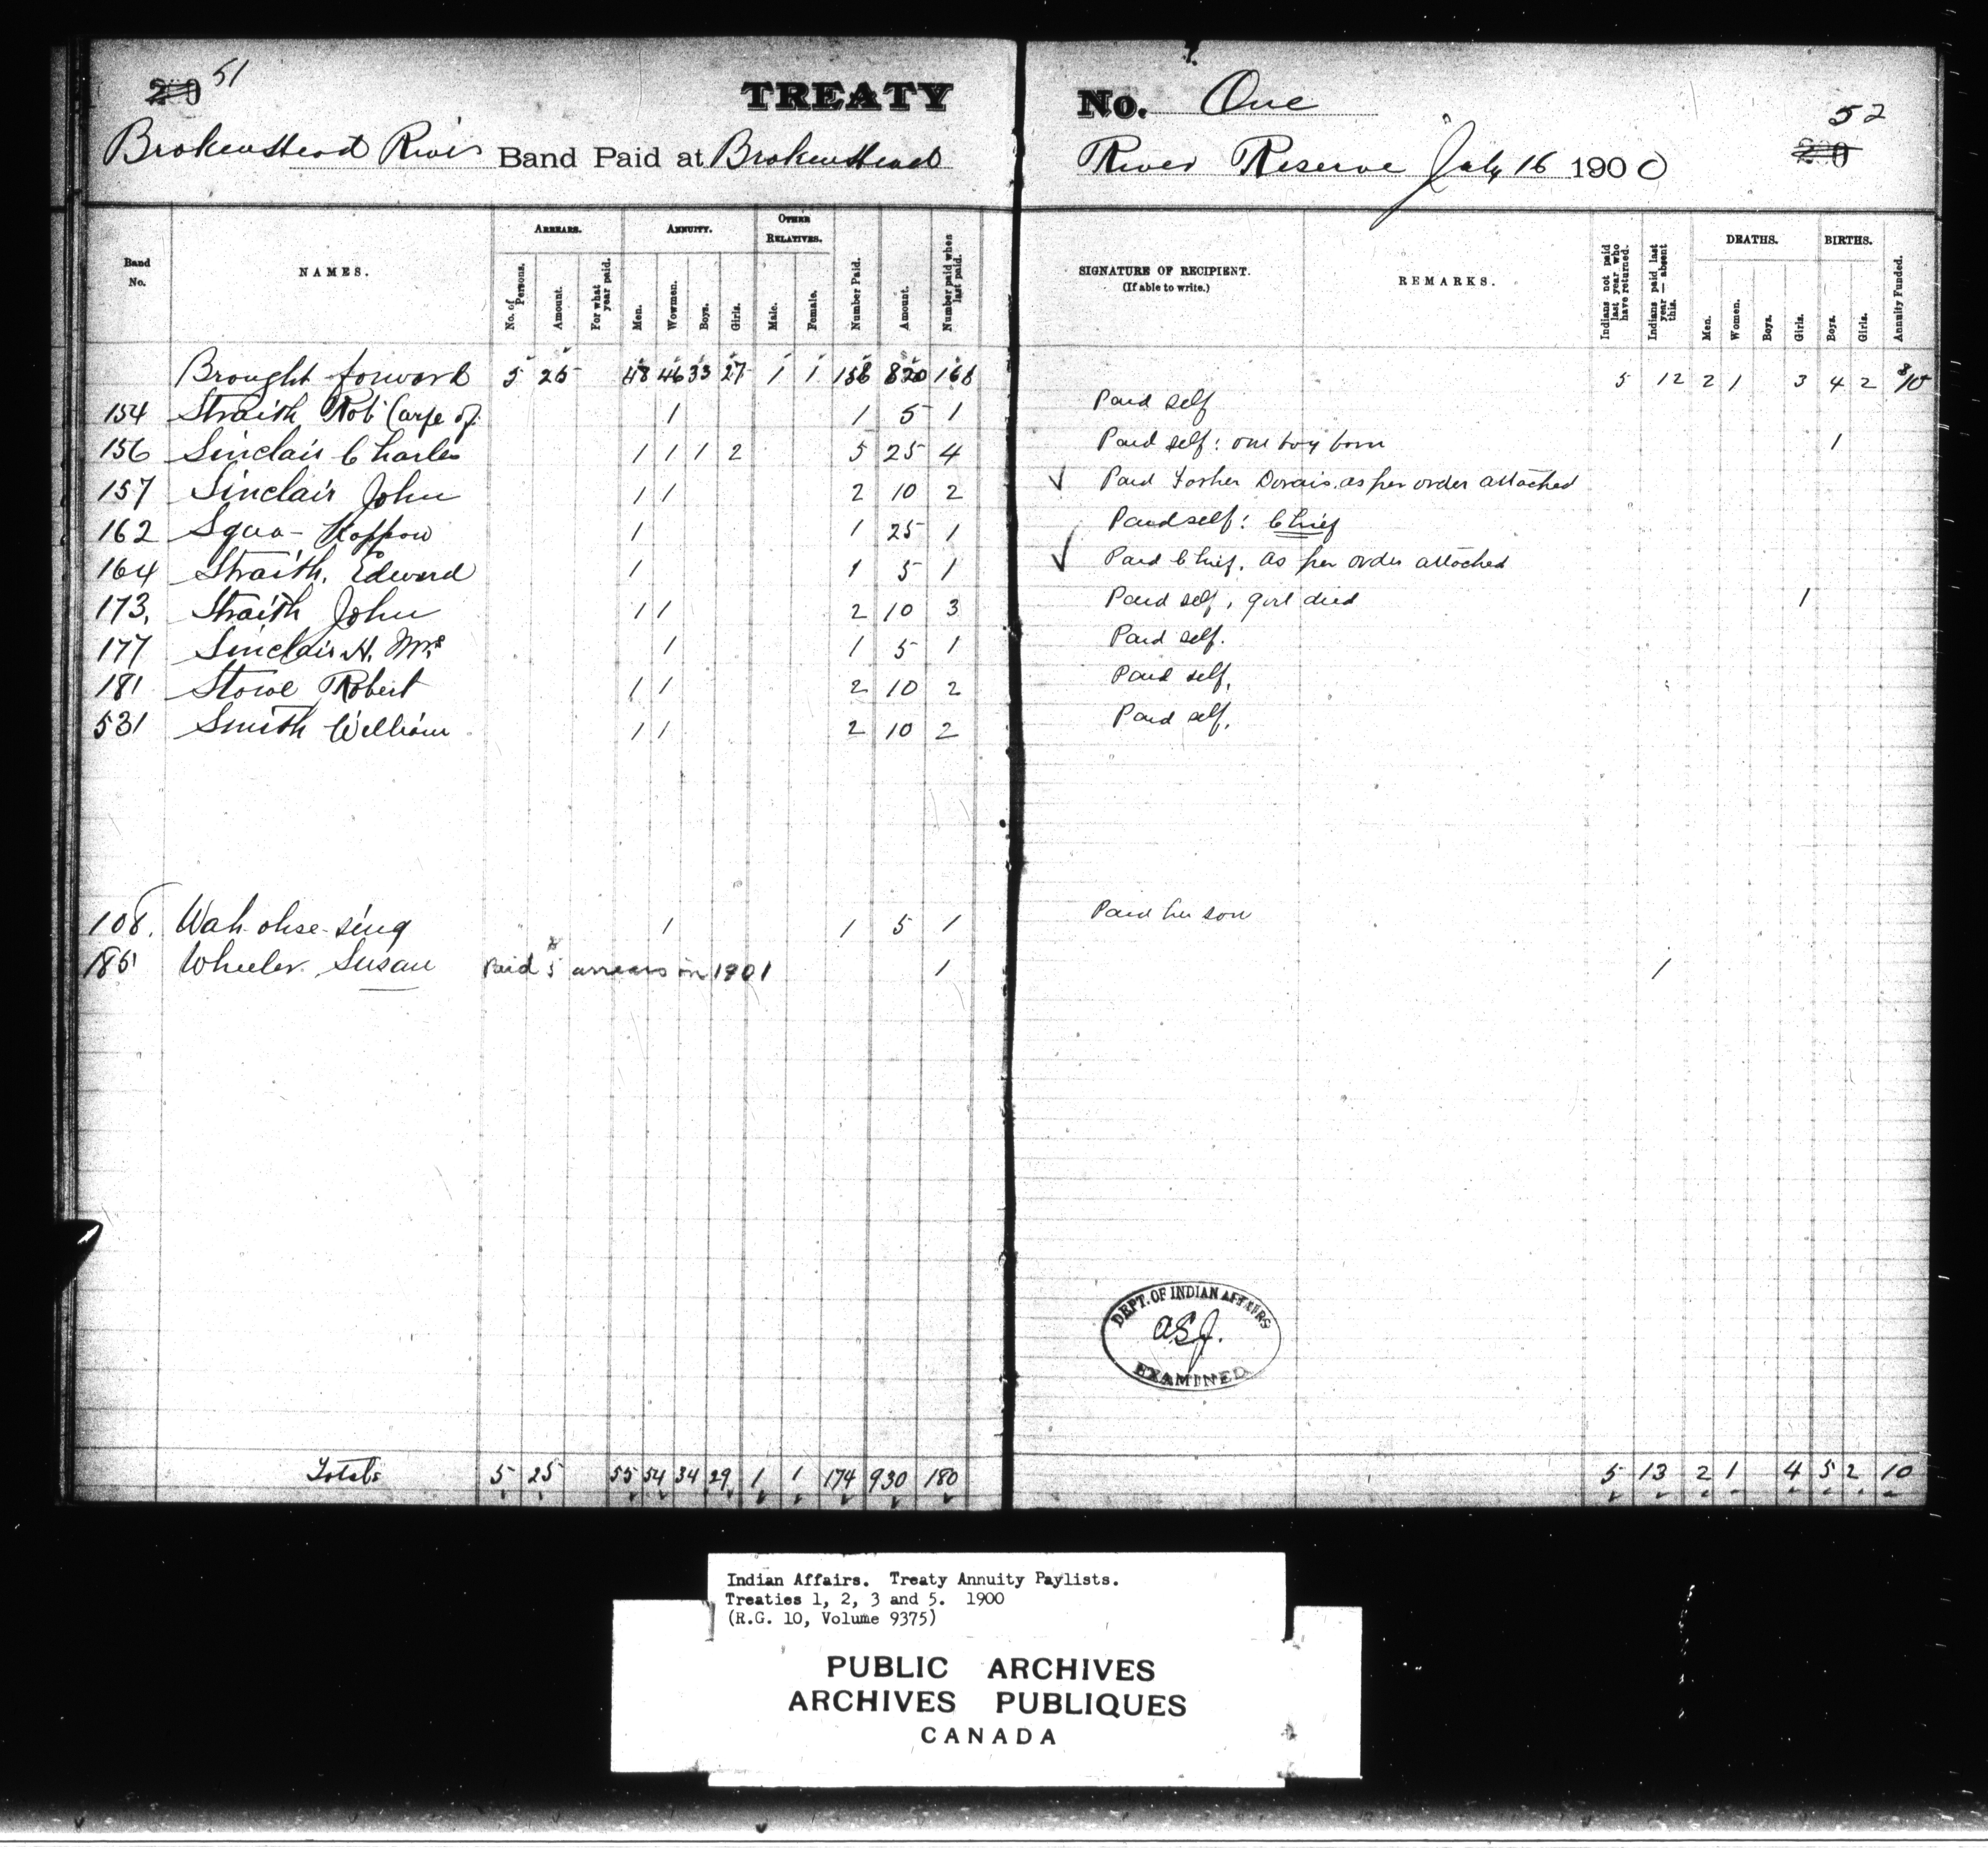 20 51 TREATY No. One 52 20
Brokenhead River Band Paid at Brokenhead River Reserve July 16 1900
ARREARS. ANNUITY. OTHER RELATIVES. DEATHS. BIRTHS.
Band No. NAMES. No. of Persons. Amount. For what year paid. Men. Wowmen. Boys. Girls. Male. Female. Number Paid. Amount. Number paid when last paid. SIGNATURE OF RECIPIENT. (If able to write.) REMARKS. Indians not paid last year who have returned. Indians paid last year — absent this. Men. Women. Boys. Girls. Boys. Girls. Annuity Funded.
Brought forward 5 25 48 46 33 27 1 1 156 820 5 12 2 1 3 4 2
154 Straith Rob 1 1 5 1 Paid self
156 Sinclair Charles 1 1 1 2 5 25 4 Paid self: one boy born 1
157 Sinclair John 1 1 2 10 2 ✓ Paid as per order attached
162 Squa- 1 1 25 1 Paid self: Chief
164 Straith, Edward 1 1 5 1 ✓ Paid Chief, as per order attached
173, Straith John 1 1 2 10 3 Paid self, girl died 1
177 Sinclair H. Mrs 1 1 5 1 Paid self.
181 Stowe Robert 1 1 2 10 2 Paid self,
531 Smith William 1 1 2 10 2 Paid self,
108. Wah-ohse-sing 1 1 5 1 Paid her son
Wheeler Susan Paid 5 arrears in 1901 1 1
DEPT. OF INDIAN AFFAIRS
A.S.J.
EXAMINED
Totals 5 25 55 54 34 29 1 1 174 930 180 5 13 2 1 4 5 2 10
Indian Affairs. Treaty Annuity Paylists.
Treaties 1, 2, 3 and 5. 1900
(R.G. 10, Volume 9375)
PUBLIC ARCHIVES
ARCHIVES PUBLIQUES
CANADA